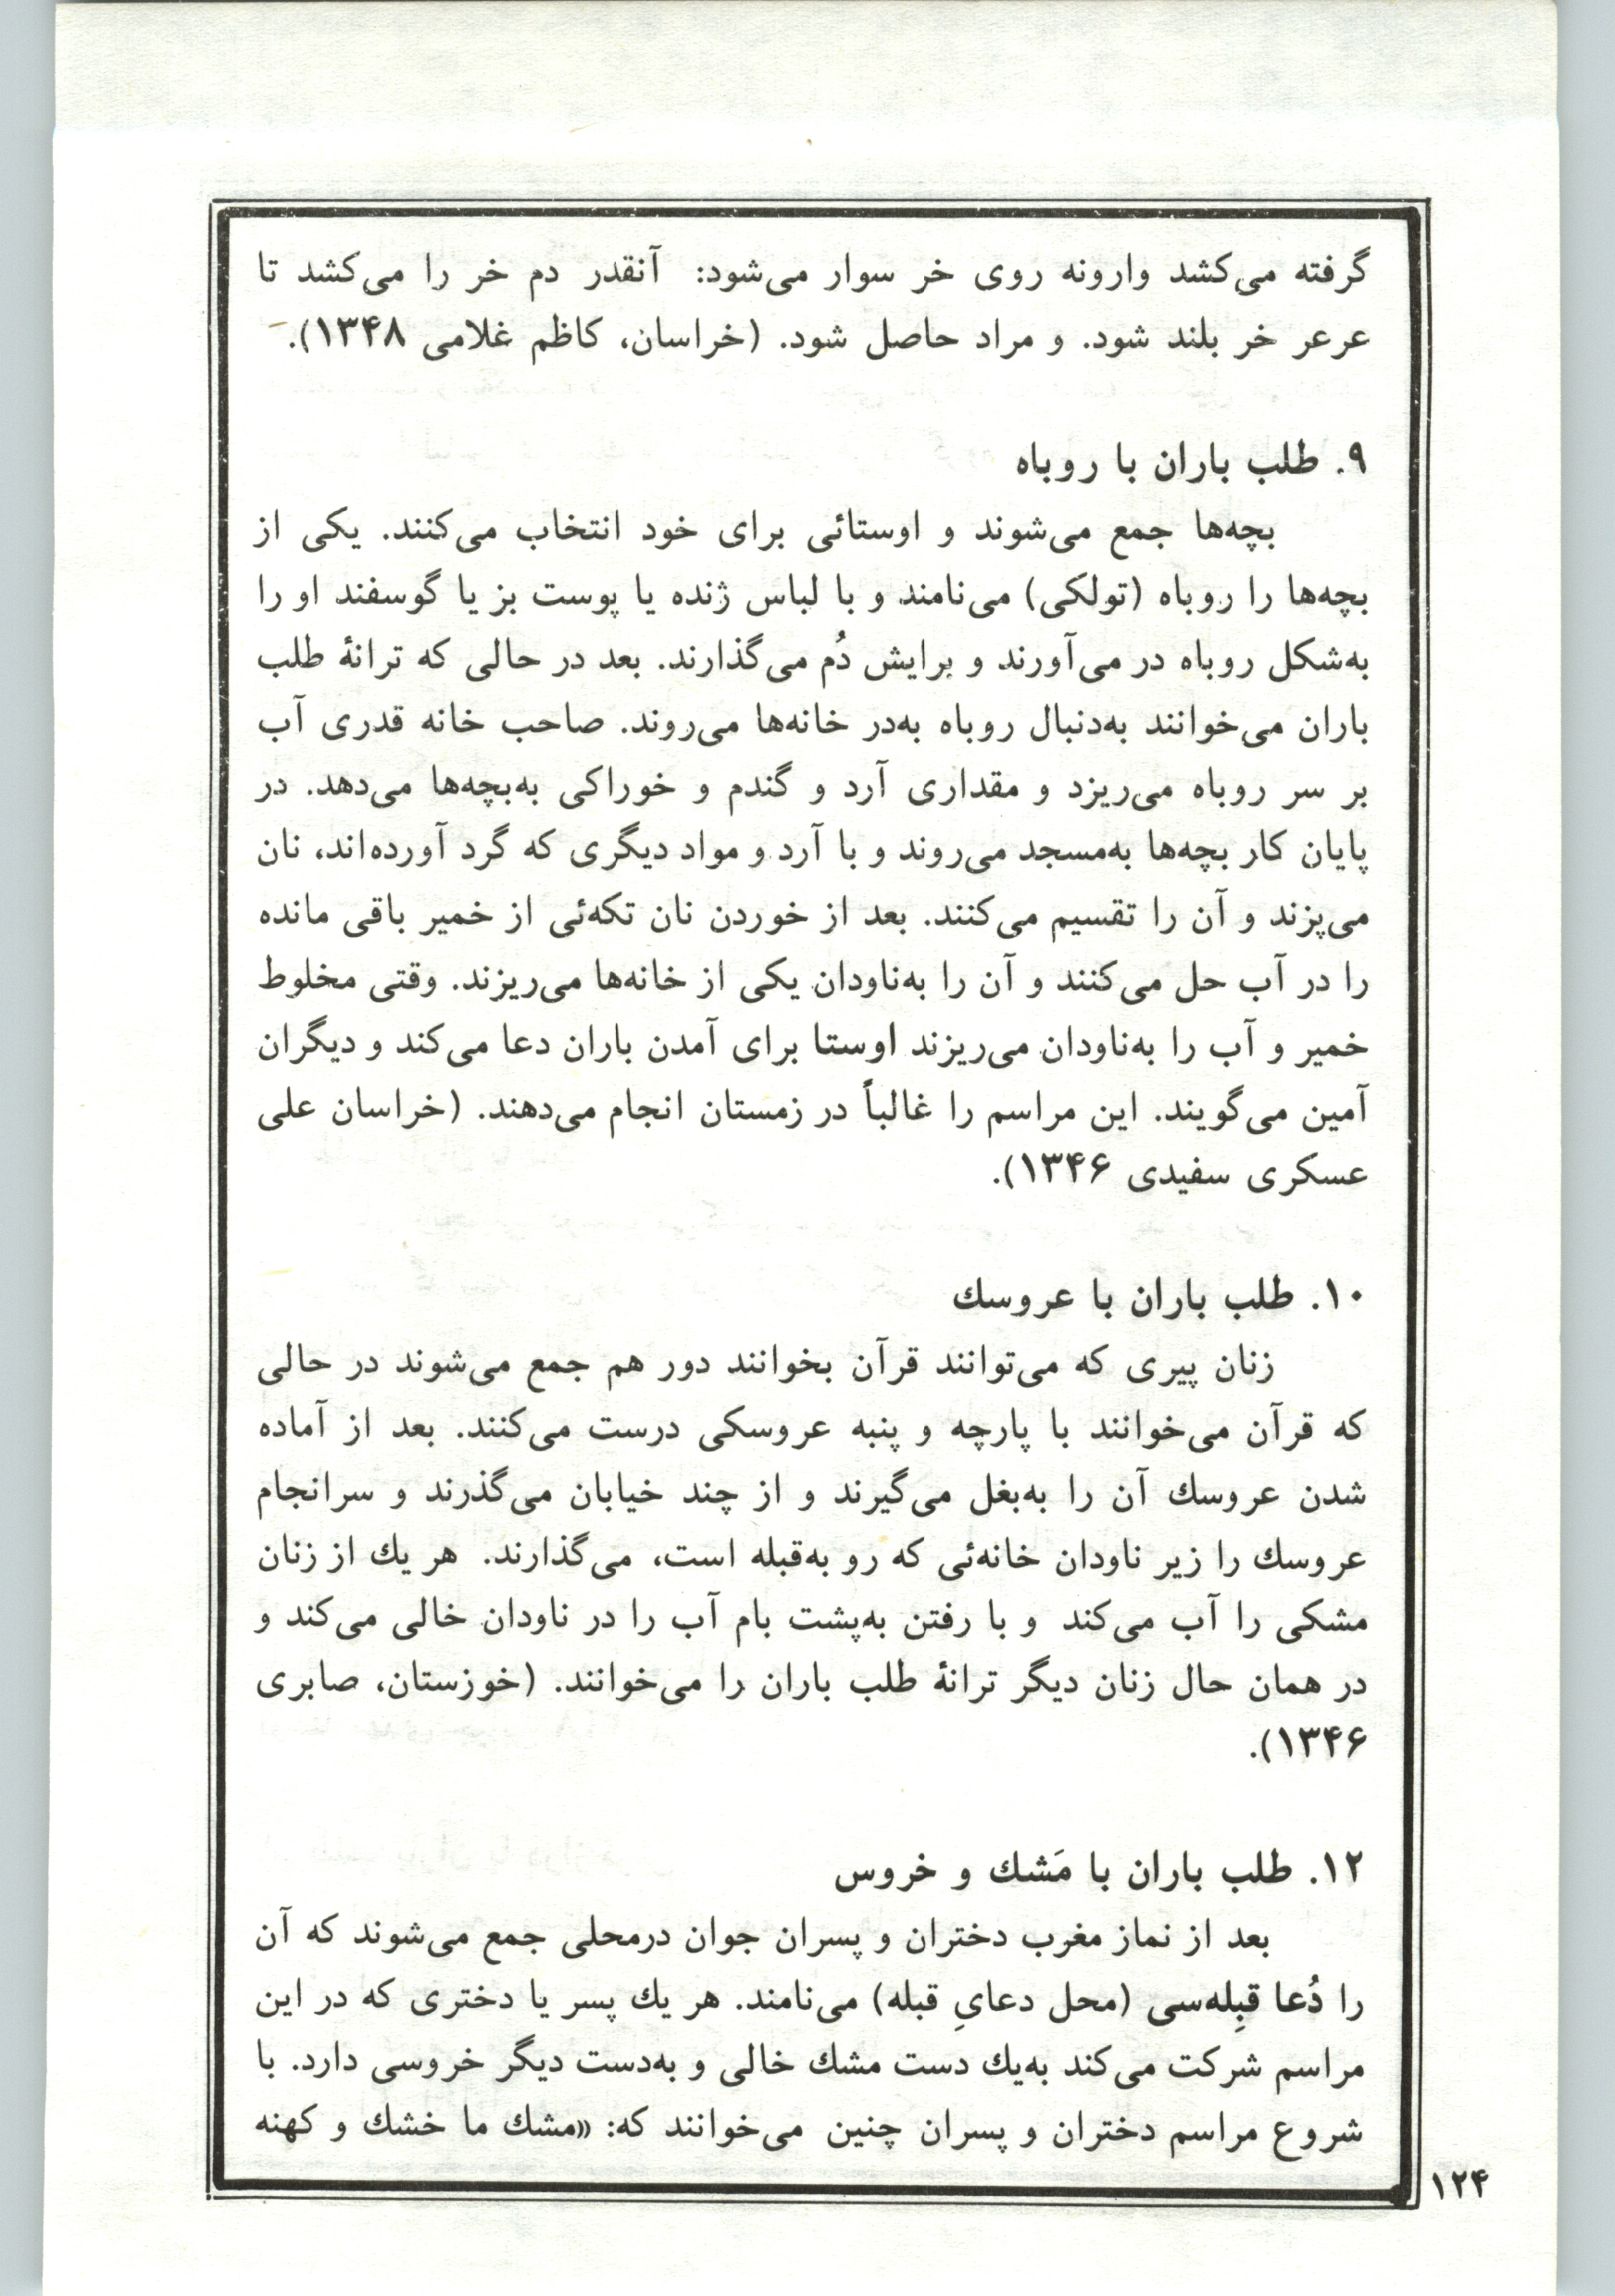 گرفته می‌کشد وارونه روی خر سوار می‌شود: آنقدر دم خر را می‌کشد تا
عرعر خر بلند شود. و مراد حاصل شود. (خراسان، کاظم غلامی ۱۳۴۸).
۹. طلب باران با روباه
بچه‌ها جمع می‌شوند و اوستائی برای خود انتخاب می‌کنند. یکی از
بچه‌ها را روباه (تولکی) می‌نامند و با لباس ژنده یا پوست بز یا گوسفند او را
به‌شکل روباه در می‌آورند و برایش دُم می‌گذارند. بعد در حالی که ترانهٔ طلب
باران می‌خوانند به‌دنبال روباه به‌در خانه‌ها می‌روند. صاحب خانه قدری آب
بر سر روباه می‌ریزد و مقداری آرد و گندم و خوراکی به‌بچه‌ها می‌دهد. در
پایان کار بچه‌ها به‌مسجد می‌روند و با آرد و مواد دیگری که گرد آورده‌اند، نان
می‌پزند و آن را تقسیم می‌کنند. بعد از خوردن نان تکه‌ئی از خمیر باقی مانده
را در آب حل می‌کنند و آن را به‌ناودان یکی از خانه‌ها می‌ریزند. وقتی مخلوط
خمیر و آب را به‌ناودان می‌ریزند اوستا برای آمدن باران دعا می‌کند و دیگران
آمین می‌گویند. این مراسم را غالباً در زمستان انجام می‌دهند. (خراسان علی
عسکری سفیدی ۱۳۴۶).
۱۰. طلب باران با عروسك
زنان پیری که می‌توانند قرآن بخوانند دور هم جمع می‌شوند در حالی
که قرآن می‌خوانند با پارچه و پنبه عروسکی درست می‌کنند. بعد از آماده
شدن عروسك آن را به‌بغل می‌گیرند و از چند خیابان می‌گذرند و سرانجام
عروسك را زیر ناودان خانه‌ئی که رو به‌قبله است، می‌گذارند. هر یك از زنان
مشکی را آب می‌کند و با رفتن به‌پشت بام آب را در ناودان خالی می‌کند و
در همان حال زنان دیگر ترانهٔ طلب باران را می‌خوانند. (خوزستان، صابری
۱۳۴۶).
۱۲. طلب باران با مَشك و خروس
بعد از نماز مغرب دختران و پسران جوان درمحلی جمع می‌شوند که آن
را دُعا قبِله‌سی (محل دعایِ قبله) می‌نامند. هر یك پسر یا دختری که در این
مراسم شرکت می‌کند به‌یك دست مشك خالی و به‌دست دیگر خروسی دارد. با
شروع مراسم دختران و پسران چنین می‌خوانند که: «مشك ما خشك و کهنه
۱۲۴